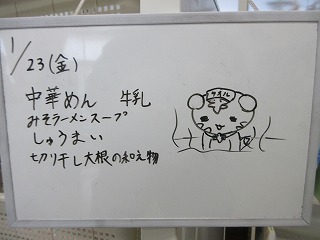 1/23(金)
中華めん 牛乳
みそラーメンスープ
しゅうまい
切り干し大根の和え物
タオル